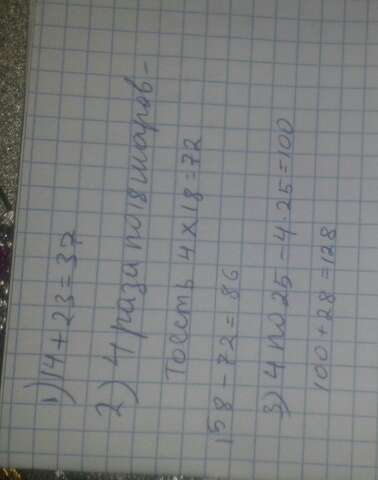 1) 14 + 23 = 37
2) 4 раза по 18 шаров -
Тоесть 4 х 18 = 72
158 - 72 = 86
3) 4 по 25 - 4 · 25 = 100
100 + 28 = 128